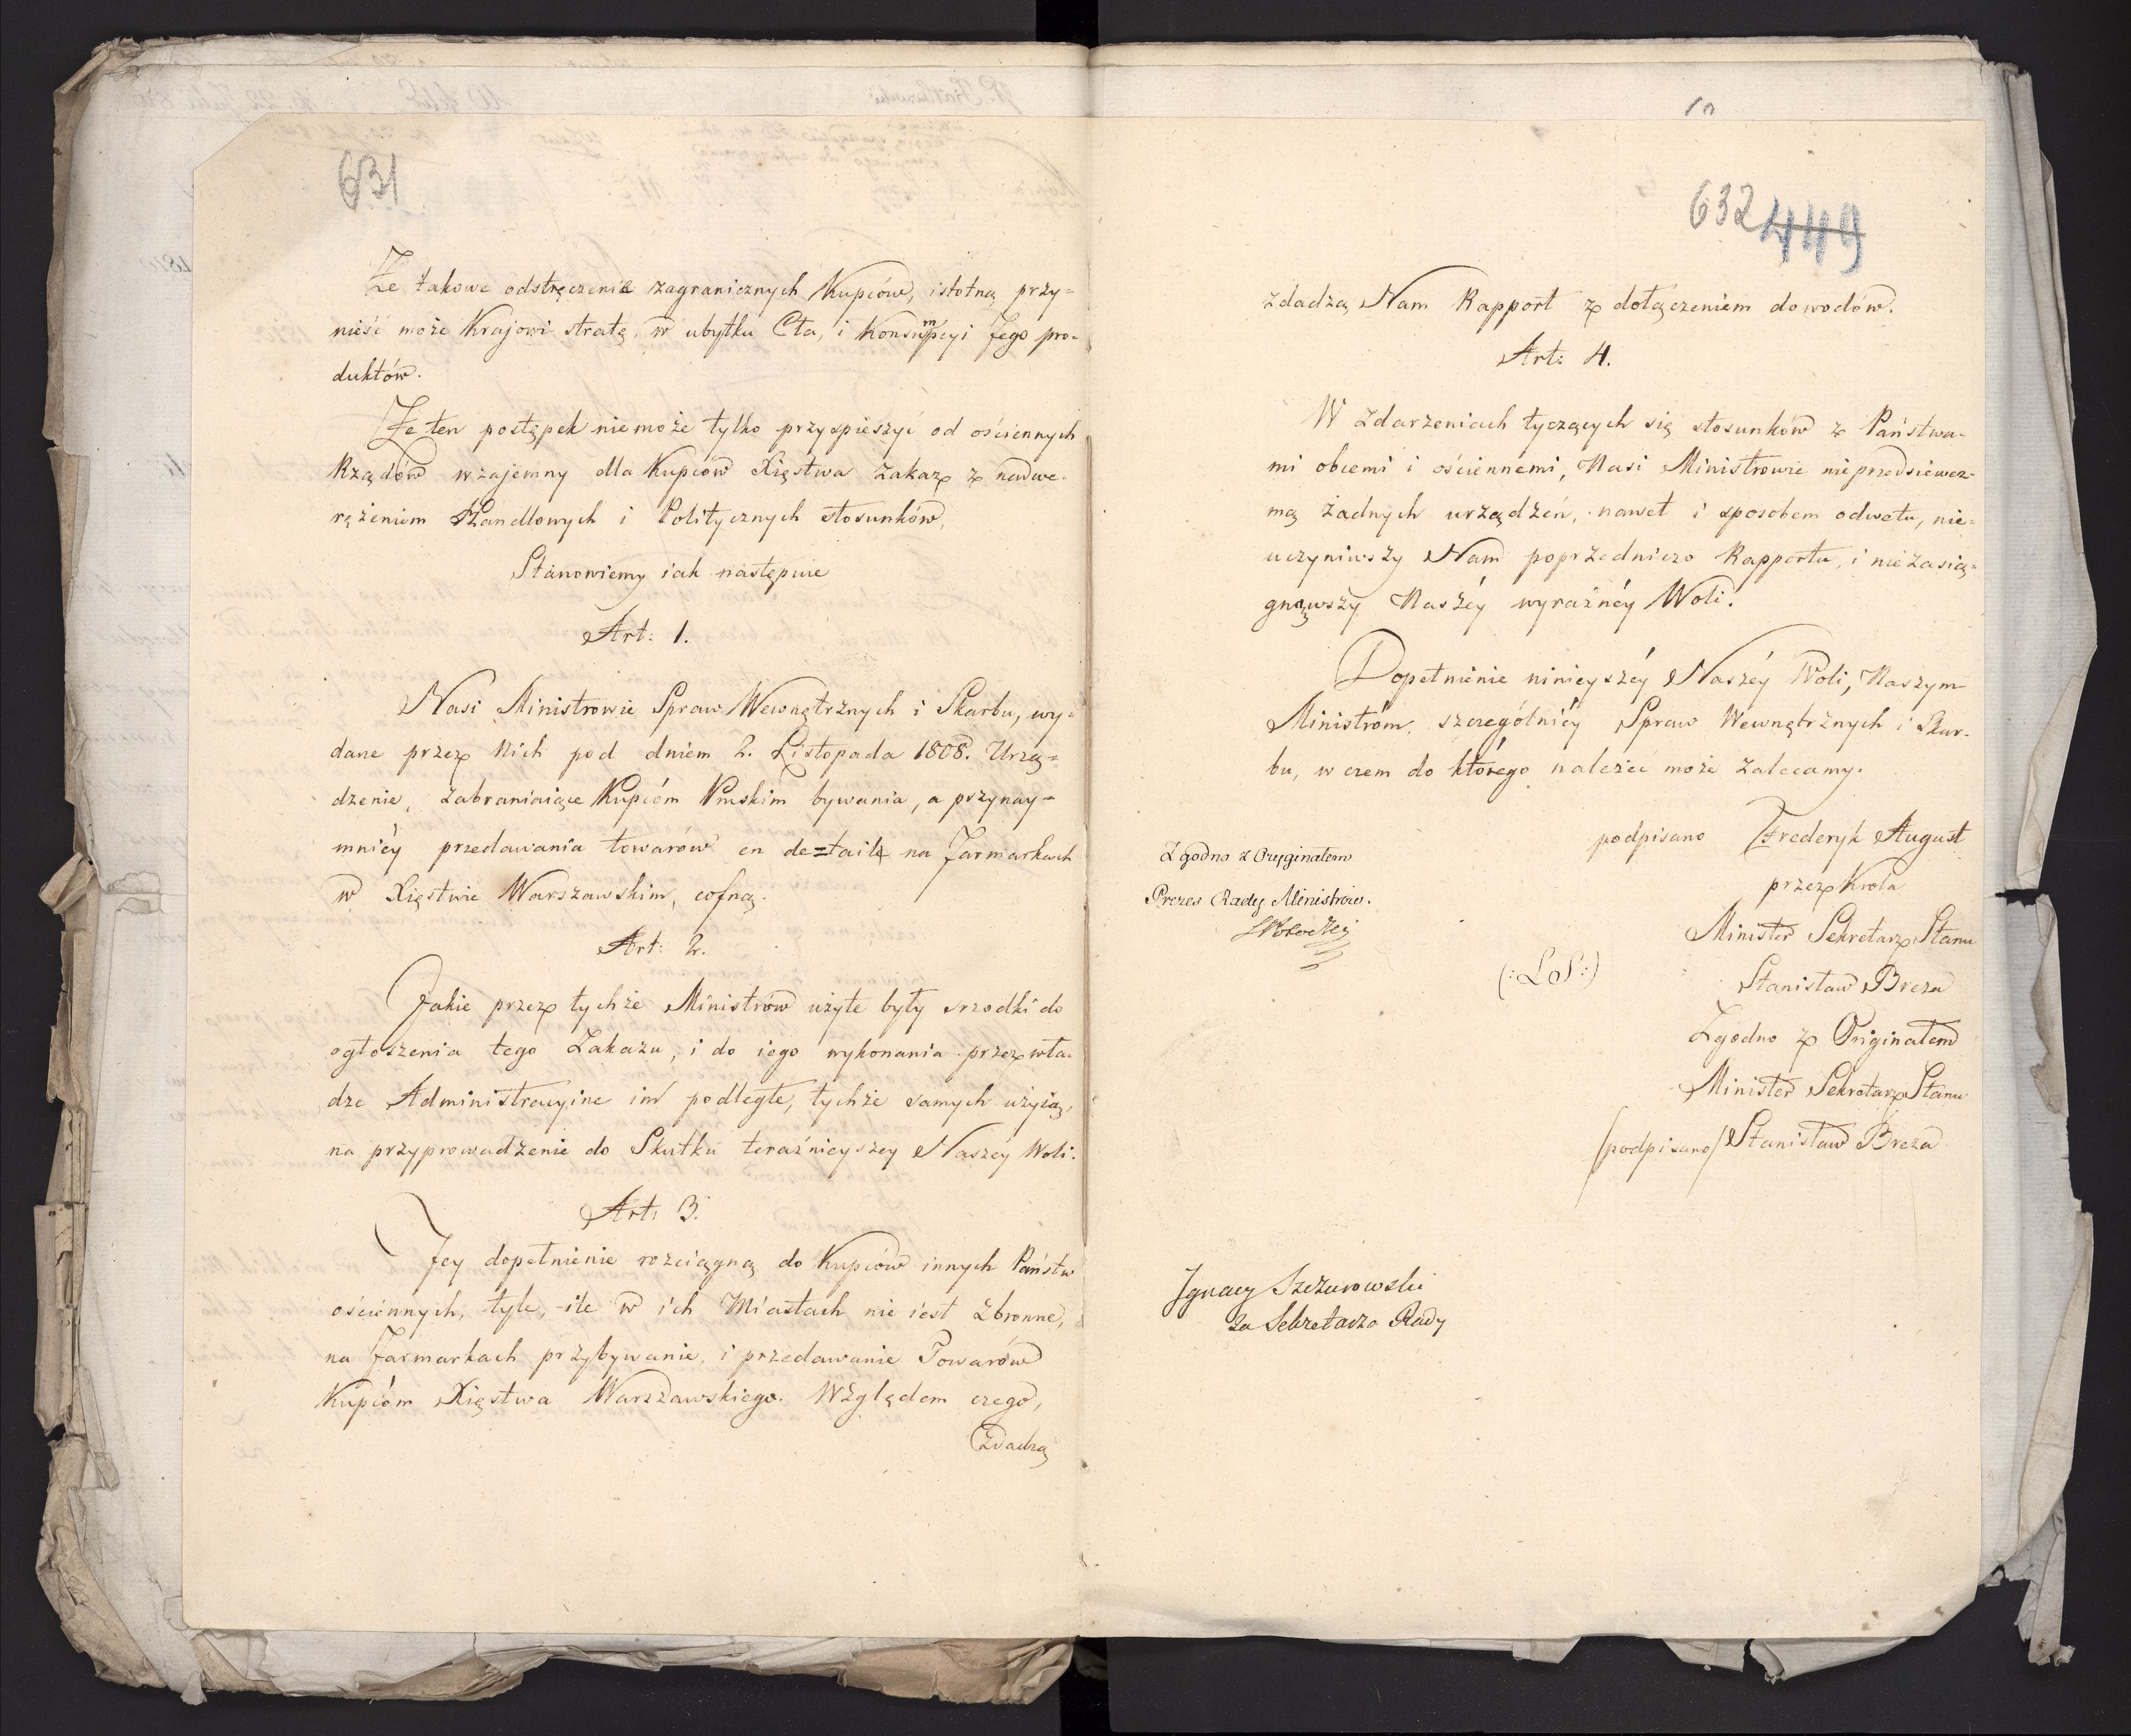 631
Że takowe odstręczenie zagranicznych Kupców, istotną przy=
nieść może Krajowi stratę, w ubytku Cła, i Konsumpcyi Jego pro=
duktów.
Że ten postępek nie może tylko przyspieszyć od ościennych
Rządów wzajemny dla Kupców Xięstwa Zakaz z nadwe=
rężeniem Handlowych i Politycznych stosunków,
Stanowiemy iak następuie
Art: 1.
Nasi Ministrowie Spraw Wewnętrznych i Skarbu, wy=
dane przez Nich pod dniem 2. Listopada 1808. Urzą=
dzenie, zabraniaiące Kupcóm Pruskim bywania, a przynay=
mniéy przedawania towarów en de=tail na Jarmarkach
w Xięstwie Warszawskim, cofną.
Art: 2.
Jakie przez tychże Ministrów użyte były srzodki do
ogłoszenia tego Zakazu, i do iego wykonania przez wła=
dze Administracyine im podległe, tychże samych użyią,
na przyprowadzenie do Skutku teraźnieyszey Naszéy Woli.
Art: 3.
Jey dopełnienie rozciągną do Kupców innych Państw
ościennych, tyle, ile w ich Miastach nie iest zbronne,
na Jarmarkach przybywanie, i przedawanie Towarów
Kupcóm Xięstwa Warszawskiego. Względem czego,
Zdadzą
10
632 449
zdadzą Nam Rapport z dołączeniem dowodów.
Art: 4.
W zdarzeniach tyczących się stosunków z Państwa=
mi obcemi i ościennemi, Nasi Ministrowie nieprzedsiewez=
mą żadnych urządzeń, nawet i sposobem odwetu, nie=
uczyniwszy Nam poprzedniczo Rapportu, i nie zasią=
gnąwszy Naszéy wyraźnéy Woli.
Dopełnienie ninieyszéy Naszéy Woli, Naszym
Ministróm, szczególniéy Spraw Wewnętrznych i Skar=
bu, w czem do którego należeć może zalecamy.
podpisano Frederyk August
przez Króla
Minister Sekretarz Stanu
(: L S :)
Stanisław Breza
Zgodno z Originałem
Minister Sekretarz Stanu
/podpisano/ Stanisław Breza
Zgodno z Oryginałem
Prezes Rady Ministrów.
SPotocki
Ignacy Szczurowski
za Sekretarza Rady